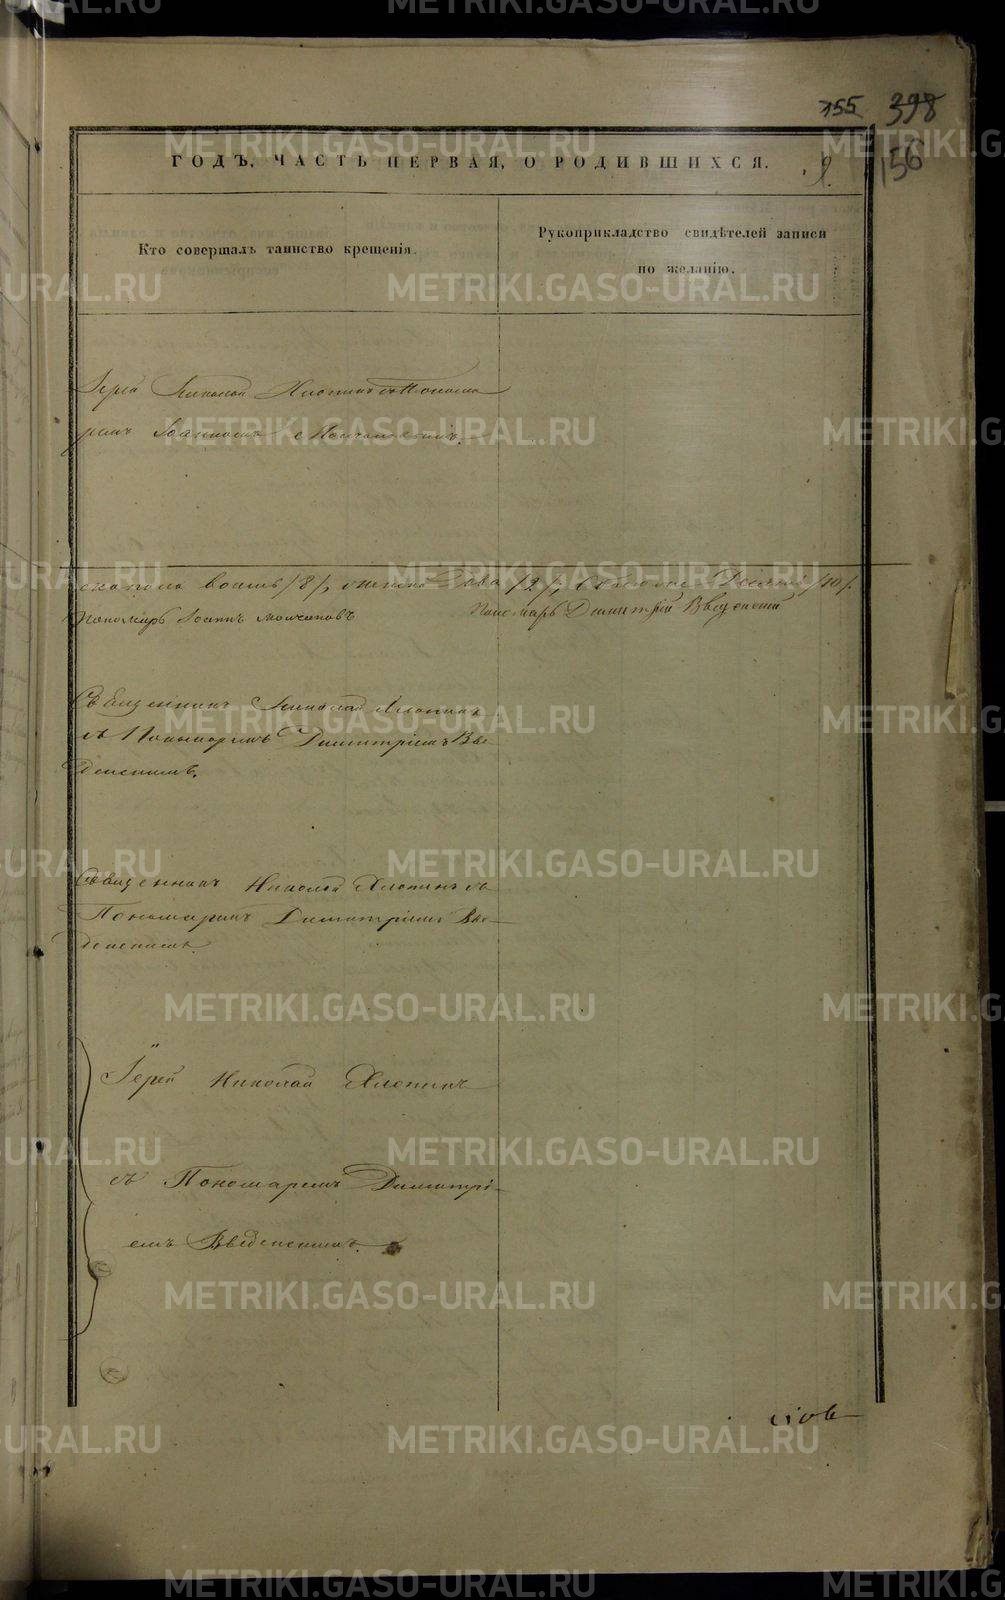 155 398
156
ГОДЪ, ЧАСТЬ ПЕРВАЯ, О РОДИВШИХСЯ.
Кто совершалъ таинство крещенія.
Рукоприкладство свидѣтелей записи
по желанію.
Іерей Николай Хлопинъ съ Понома
ремъ Іоанномъ
пола восемь /8/, женска два /2/, обоего десять /10/.
Пономарь Іоаннъ Молчановъ Пономарь Димитрій Введенскій
Священникъ Николай Хлопинъ
съ Пономаремъ Димитріемъ Вве
денскимъ.
Священникъ Николай Хлопинъ съ
Пономаремъ Димитріемъ Вве-
денскимъ
Іерей Николай Хлопинъ
съ Пономаремъ Димитрі-
емъ Введенскимъ.
METRIKI.GASO-URAL.RU